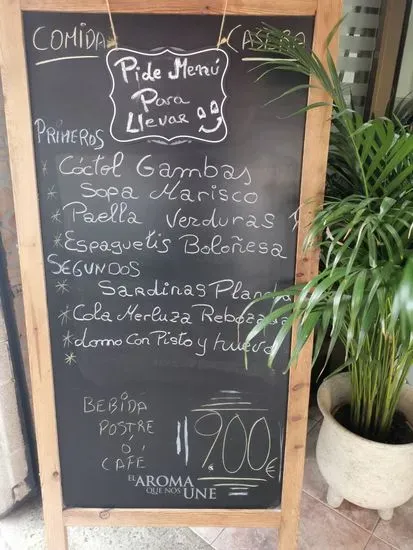 COMIDA CASERA
Pide Menú
Para
Llevar
PRIMEROS
* Cóctol Gambas
* Sopa Marisco
* Paella Verduras
* Espaguetis Boloñesa
SEGUNDOS
* Sardinas Plancha
* Cola Merluza Rebozada
* Lomo Con Pisto y huevo
*
BEBIDA
POSTRE
Ó
CAFÉ
9.00€
EL AROMA
QUE NOS UNE